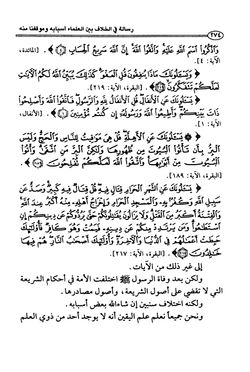 ٢٧٤
رسالة في الخلاف بين العلماء أسبابه وموقفنا منه
وَاذْكُرُوا اسْمَ اللَّهِ عَلَيْهِ وَاتَّقُوا اللَّهَ إِنَّ اللَّهَ سَرِيعُ الْحِسَابِ ﴾ [المائدة،
الآية: ٤].
﴿ وَيَسْأَلُونَكَ مَاذَا يُنْفِقُونَ قُلِ الْعَفْوَ كَذَلِكَ يُبَيِّنُ اللَّهُ لَكُمُ الْآيَاتِ
لَعَلَّكُمْ تَتَفَكَّرُونَ ﴾ [البقرة، الآية: ٢١٩].
﴿ يَسْأَلُونَكَ عَنِ الْأَنْفَالِ قُلِ الْأَنْفَالُ لِلَّهِ وَالرَّسُولِ فَاتَّقُوا اللَّهَ وَأَصْلِحُوا
ذَاتَ بَيْنِكُمْ وَأَطِيعُوا اللَّهَ وَرَسُولَهُ إِنْ كُنْتُمْ مُؤْمِنِينَ ﴾ [الأنفال،
الآية: ١].
﴿ يَسْأَلُونَكَ عَنِ الْأَهِلَّةِ قُلْ هِيَ مَوَاقِيتُ لِلنَّاسِ وَالْحَجِّ وَلَيْسَ
الْبِرُّ بِأَنْ تَأْتُوا الْبُيُوتَ مِنْ ظُهُورِهَا وَلَكِنَّ الْبِرَّ مَنِ اتَّقَى وَأْتُوا
الْبُيُوتَ مِنْ أَبْوَابِهَا وَاتَّقُوا اللَّهَ لَعَلَّكُمْ تُفْلِحُونَ ﴾
[البقرة، الآية: ١٨٩].
﴿ يَسْأَلُونَكَ عَنِ الشَّهْرِ الْحَرَامِ قِتَالٍ فِيهِ قُلْ قِتَالٌ فِيهِ كَبِيرٌ وَصَدٌّ عَنْ
سَبِيلِ اللَّهِ وَكُفْرٌ بِهِ وَالْمَسْجِدِ الْحَرَامِ وَإِخْرَاجُ أَهْلِهِ مِنْهُ أَكْبَرُ عِنْدَ اللَّهِ
وَالْفِتْنَةُ أَكْبَرُ مِنَ الْقَتْلِ وَلَا يَزَالُونَ يُقَاتِلُونَكُمْ حَتَّى يَرُدُّوكُمْ عَنْ دِينِكُمْ إِنِ
اسْتَطَاعُوا وَمَنْ يَرْتَدِدْ مِنْكُمْ عَنْ دِينِهِ فَيَمُتْ وَهُوَ كَافِرٌ فَأُولَئِكَ
حَبِطَتْ أَعْمَالُهُمْ فِي الدُّنْيَا وَالْآخِرَةِ وَأُولَئِكَ أَصْحَابُ النَّارِ هُمْ فِيهَا
خَالِدُونَ ﴾ [البقرة، الآية: ٢١٧].
إلى غير ذلك من الآيات.
ولكن بعد وفاة الرسول ﷺ اختلفت الأمة في أحكام الشريعة
التي لا تقضي على أصول الشريعة، وأصول مصادرها.
ولكنه اختلاف سنبين إن شاء الله بعض أسبابه.
ونحن جميعاً نعلم علم اليقين أنه لا يوجد أحد من ذوي العلم